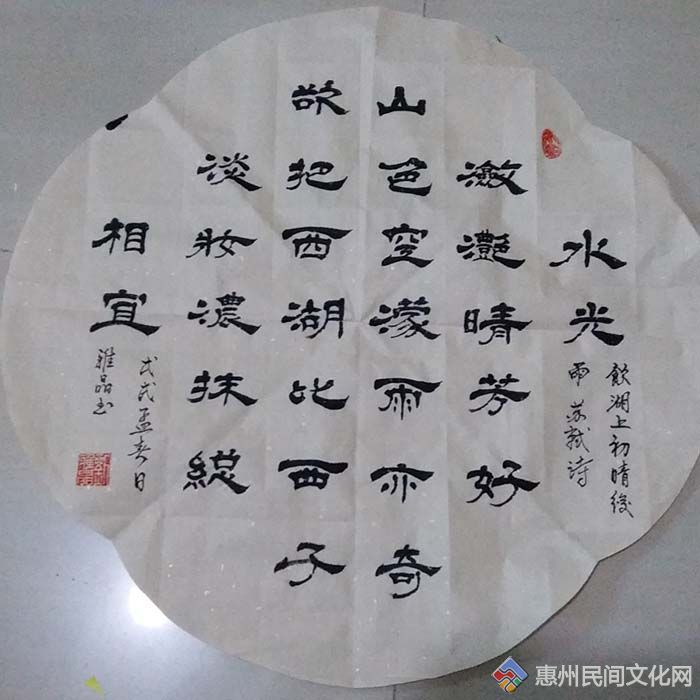 飲湖上初晴後
雨 苏軾诗
水光
瀲灔晴芳好
山色空濛雨亦奇
欲把西湖比西子
淡妝濃抹緫
相宜
戊戌孟春日
雅晶书
惠州民间文化网